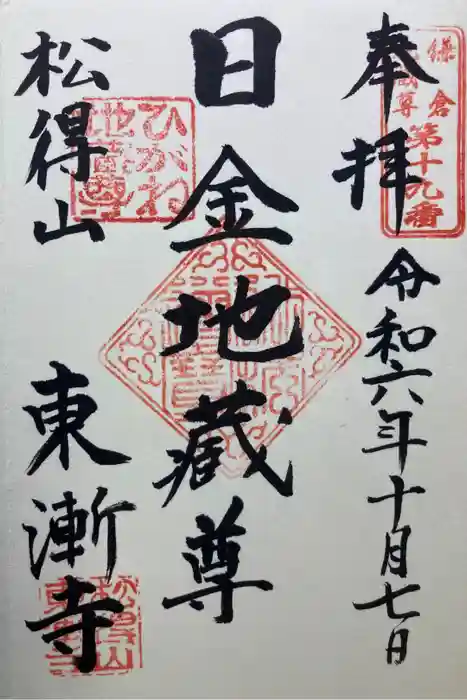 鎌倉
地蔵尊
第十九番
奉拝
令和六年十月七日
日金地蔵尊
ひがね
地蔵尊
松得山
東漸寺